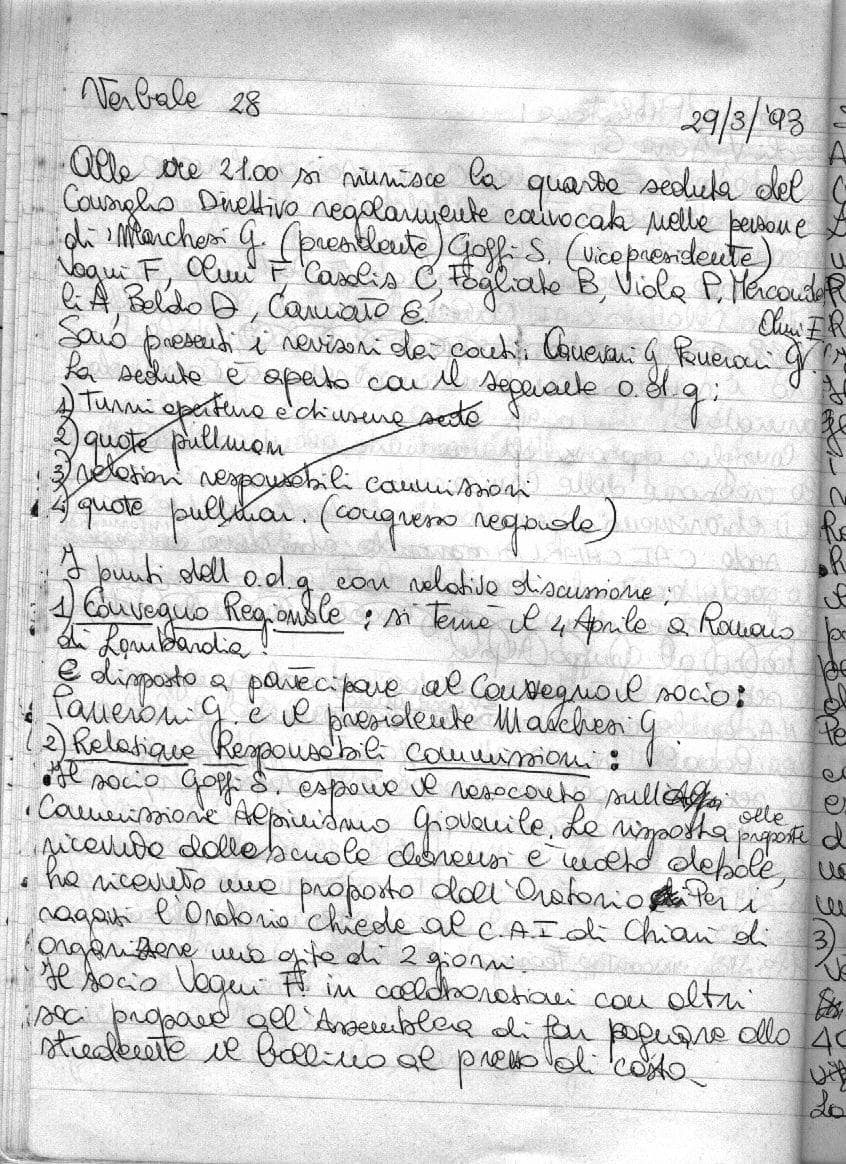 Verbale 28
29/3/'93
Alle ore 21.00 si riunisce la quarta seduta del
Consiglio Direttivo regolarmente convocata nelle persone
di: Marchesi G. (presidente) Goffi S. (vicepresidente)
Vogui F, Olmi F, Casalis C, Fogliata B, Viola P, Mercande
li A, Beldo D, Carniato E.
Olmi F
Sono presenti i revisori dei conti:
La seduta è aperta con il seguente o.d.g:
1) Turni apertura e chiusura sede
2) quote pullman
3) relazioni responsabili commissioni
4) quote pullman. (congresso regionale)
I punti dell o.d.g con relativa discussione:
1) Convegno Regionale : si terrà il 4 Aprile a Romano
di Lombardia.
È disposto a partecipare al Convegno il socio:
Paneroni G. e il presidente Marchesi G.
2) Relazione Responsabili Commissioni :
Il socio Goffi S. espone il resoconto sull
Commissione Alpinismo Giovanile. La risposta alle proposte
ricevuta dalle scuole clarensi è molto debole,
ha ricevuto una proposta dall'Oratorio Per i
ragazzi l'Oratorio chiede al C.A.I. di Chiari di
organizzare una gita di 2 giorni.
Il socio Vogui F. in collaborazioni con altri
soci propone all'Assemblea di far pagare allo
studente il bollino al prezzo di costo